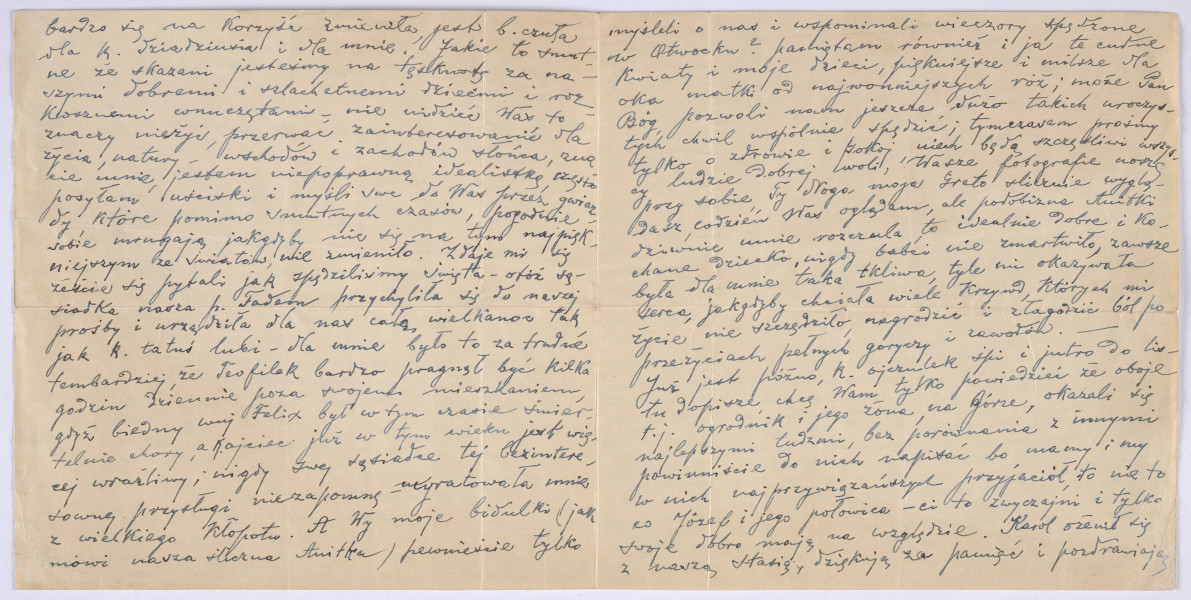 bardzo się na korzyść zmieniła, jest b. czuła
dla k. dziadziusia i dla mnie. Jakie to smut-
ne że skazani jesteśmy na tęsknotę za na-
szymi dobremi i szlachetnemi dziećmi i roz-
kosznemi wnuczętami – nie widzieć Was to
znaczy nieżyć, przerwać zainteresowanie dla
życia, natury – wschodów i zachodów słońca, zna
cie mnie, jestem niepoprawną idealistką, często
posyłam uściski i myśli swe do Was przez gwiaz-
dy które pomimo smutnych czasów, pogodnie
sobie mrugają jakgdyby nic się na tym najpięk-
niejszym ze światów nie zmieniło. Zdaje mi się
żeście się pytali jak spędziliśmy Święta – otóż są-
siadka nasza p. Fadem przychyliła się do naszej
prośby i urządziła dla nas całą wielkanoc tak
jak k. tatuś lubi – dla mnie było to za trudne
tembardziej, że Teofilek bardzo pragnął być kilka
godzin dziennie poza swojem mieszkaniem,
gdyż biedny wuj Felix był w tym czasie śmier-
telnie chory, a Ojciec już w tym wieku jest wię-
cej wrażliwy; nigdy swej sąsiadce tej bezintere-
sownej przysługi niezapomnę – uratowała mnie
z wielkiego kłopotu. A Wy moje bidulki (jak
mówi nasza śliczna Anitka) pewnieście tylko
myśleli o nas i wspominali wieczory spędzone
w Otwocku? pamiętam również i ja te cudne
kwiaty i moje dzieci, piękniejsze i milsze dla
oka matki od najwonniejszych róż; może Pan
Bóg pozwoli nam jeszcze dużo takich uroczys-
tych chwil wspólnie spędzić; tymczasem prosimy
tylko o zdrowie i pokoj niech będą szczęśliwi wszys-
cy ludzie dobrej woli! Wasze fotografie noszę
przy sobie, Ty droga moja Greto ślicznie wyglą-
dasz, codzień Was oglądam, ale podobizna Anitki
dziwnie mnie rozczula, to idealnie dobre i ko-
chane dziecko, nigdy babci nie zmartwiło, zawsze
była dla mnie taka tkliwa, tyle mi okazywała
serca, jakgdyby chciała wiele krzywd, których mi
życie nie szczędziło, nagrodzić i złagodzić ból po
przeżyciach pełnych goryczy i zawodów. –
Już jest późno, k. ojczulek śpi i jutro do lis-
tu dopisze chcę Wam tylko powiedzieć że oboje
t. j. ogrodnik i jego żona, na górze, okazali się
najlepszymi ludźmi, bez porównania z innymi
powinniście do nich napisać bo mamy i my
w nich najprzywiązańszych przyjaciół, to nie to
co Józef i jego połowica – ci to zwyczajni i tylko
swoje dobro mają na względzie. Karol ożenił się
z naszą Stasią, dziękują za pamięć i pozdrawiają